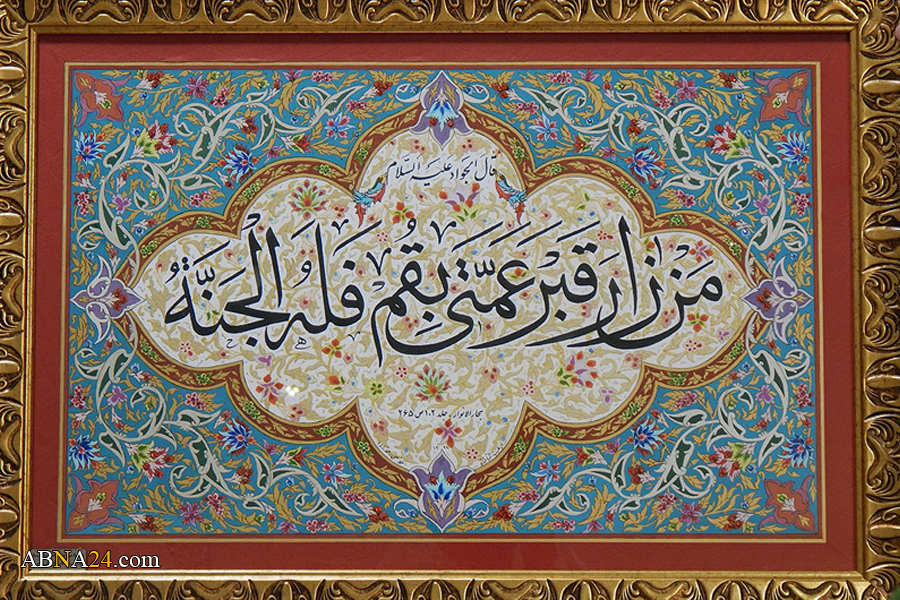 قال الجواد علیه السّلام
مَنْ زارَ قَبرَ عَمَّتی بِقُم فَلَهُ الجَنَّةُ
بحارالانوار، جلد ۱۰۲ ص ۲۶۵
ABNA24.com